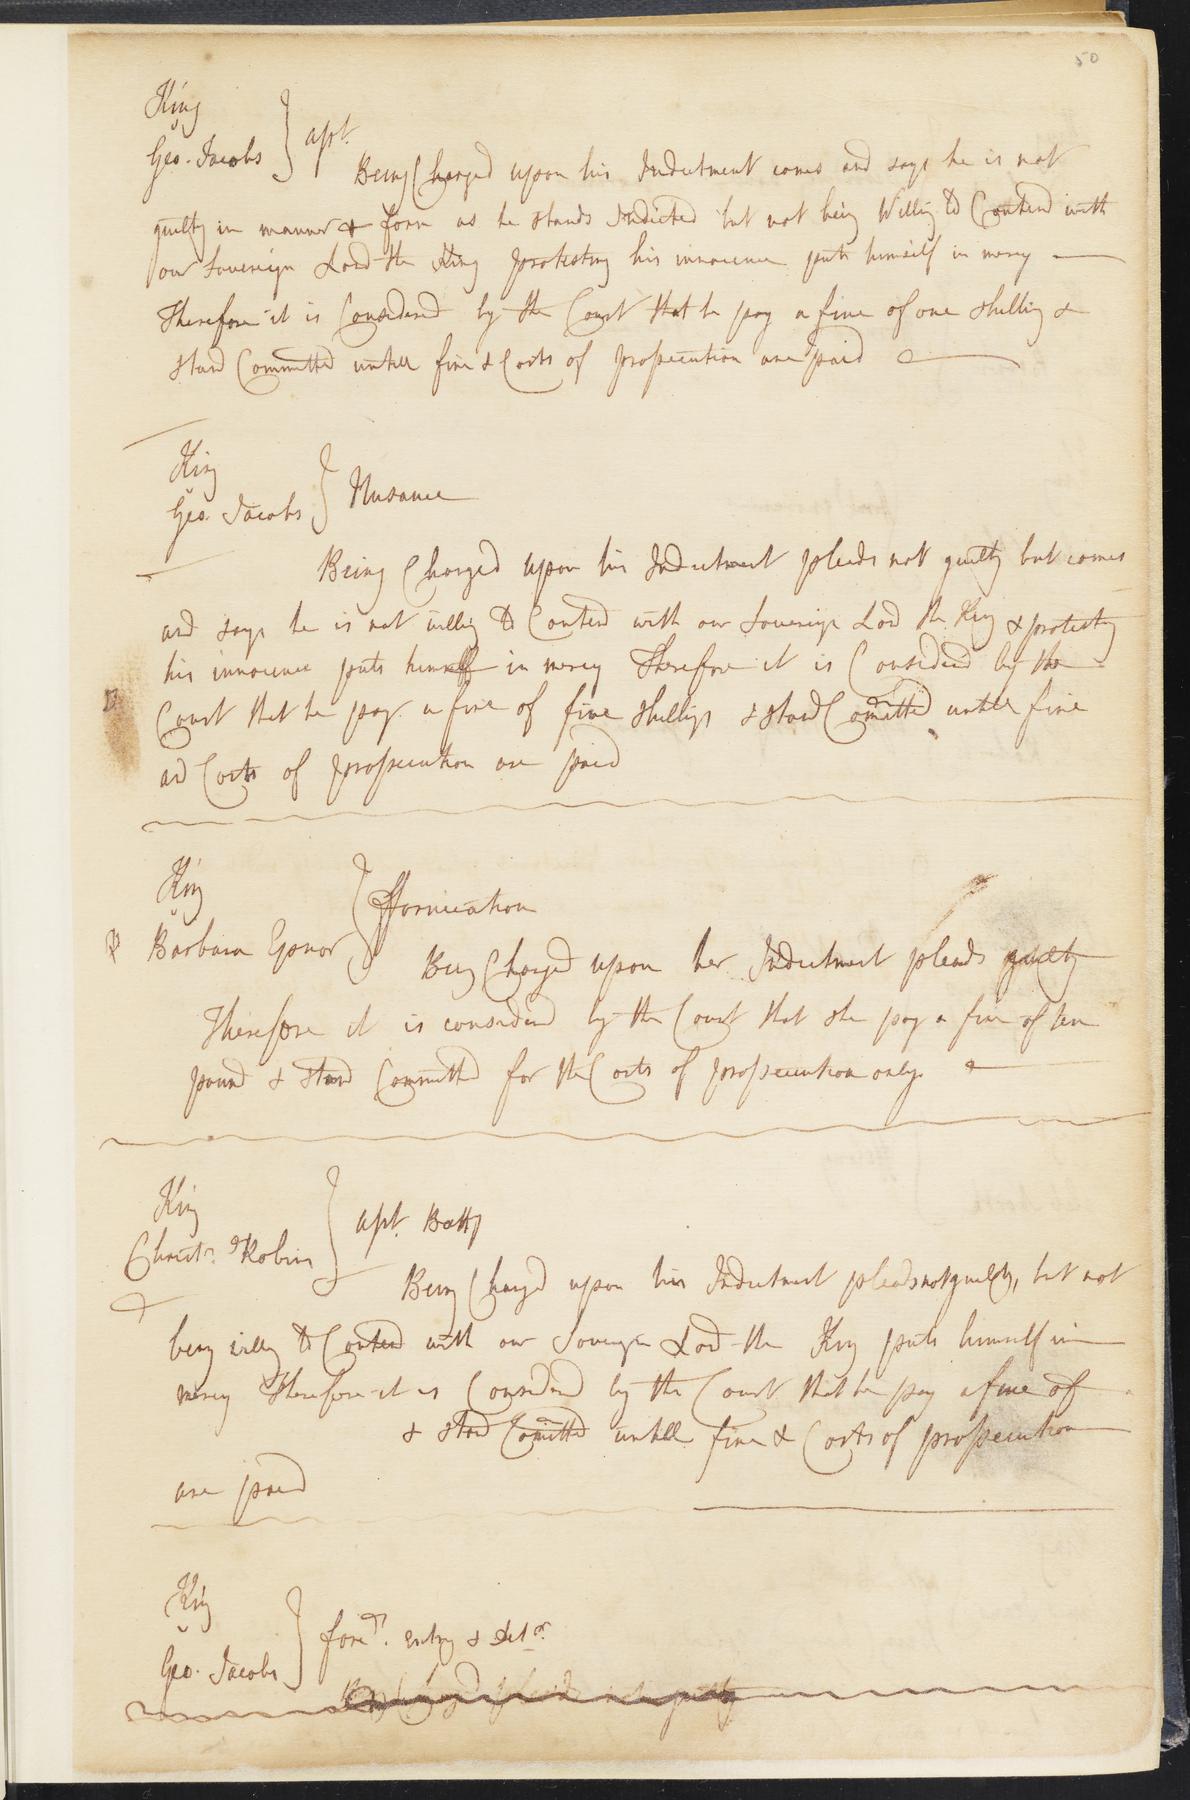 50
King
v
Geo. Jacobs } apt.
Being Charged upon his Indictment comes and says he is not
guilty in manner & form as he stands Indicted but not being Willing to Contend with
our Sovereign Lord the King protesting his innocence puts himself in mercy
Therefore it is Considered by the Court that he pay a fine of one shilling &
stand Committed untill fine & Costs of prosecution are paid
King
v
Geo. Jacobs } Nusance
Being Charged upon his Indictment pleads not guilty but comes
and says he is not willing to Contend with our Sovereign Lord the King & protesting
his innocence puts himself in mercy Therefore it is Considered by the
Court that he pay a fine of five shillings & stand Comitted untill fine
and Costs of prosecution are paid
King
v
Barbara } fornication
Being Charged upon her Indictment pleads guilty
Therefore it is considered by the Court that she pay a fine of ten
pound & stand Committed for the Costs of prosecution only
King
v
Christr. Robins } apt. Batty
Being Charged upon his Indictment pleads not guilty, but not
being willing to Contend with our Sovereign Lord the King puts himself in
mercy Therefore it is Considered by the Court that he pay a fine of
& stand Comitted untill fine & Costs of prosecution
are paid
King
v
Geo. Jacobs } forc. entry & detr.
Being Charged pleads not guilty